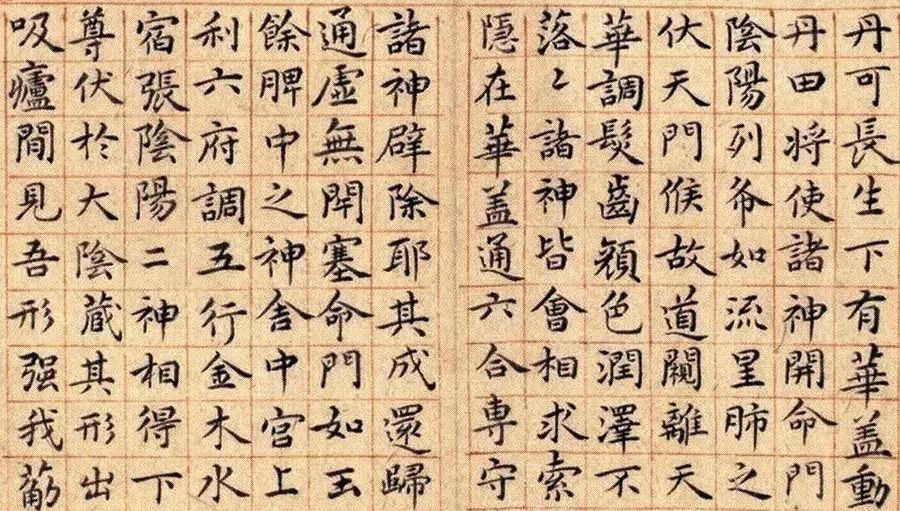 丹可長生下有華盖動
丹田将使諸神開命門
陰陽列布如流星肺之
伏天門候故道闚離天
華調髮齒顔色潤澤不
落〻諸神皆會相求索
隱在華盖通六合専守
諸神辟除耶其成還歸
通虛無閉塞命門如玉
餘脾中之神舎中宮上
利六府調五行金木水
宿張陰陽二神相得下
尊伏於大陰蔵其形出
吸廬間見吾形强我筋